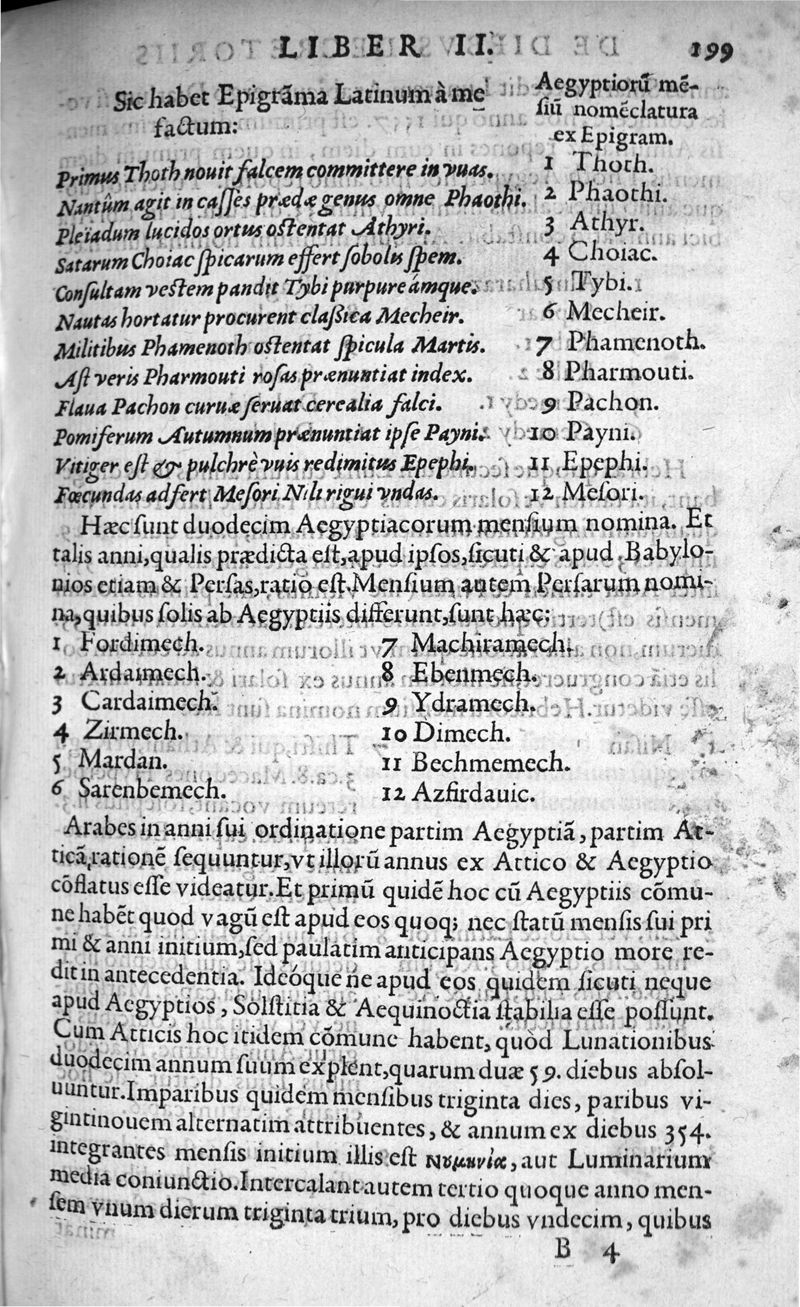 LIBER II.
199
Sic habet Epigrãma Latinum à me
factum:
Aegyptiorũ mẽ-
ſiũ nomẽclatura
ex Epigram.
Primus Thoth nouit falcem committere in vuas.
1 Thoth.
Nantûm agit in caſſes prædæ genus omne Phaothi.
2 Phaothi.
Pleiadum lucidos ortus oſtentat Athyri.
3 Athyr.
Satarum Choiac ſpicarum effert ſobolus ſpem.
4 Choiac.
Conſultam veſtem pandit Tybi purpureámque.
5 Tybi.
Nautas hortatur procurent claßica Mecheir.
6 Mecheir.
Militibus Phamenoth oſtentat ſpicula Martis.
7 Phamenoth.
Aſt veris Pharmouti roſas prænuntiat index.
8 Pharmouti.
Flaua Pachon curuæ ſeruat cerealia falci.
9 Pachon.
Pomiferum Autumnum prænuntiat ipſe Payni.
10 Payni.
Vitiger eſt & pulchrè vuis redimitus Epephi.
11 Epephi.
Fœcundas adfert Meſori Nili rigui vndas.
12 Meſori.
Hæc ſunt duodecim Aegyptiacorum menſium nomina. Et
talis anni, qualis prædicta eſt, apud ipſos, ſicuti & apud Babylo-
nios etiam & Perſas, ratio eſt. Menſium autem Perſarum nomi-
na, quibus ſolis ab Aegyptiis differunt, ſunt hæc:
1 Fordimech.
7 Machiramech.
2 Ardaimech.
8 Ebenmech.
3 Cardaimech.
9 Ydramech.
4 Zirmech.
10 Dimech.
5 Mardan.
11 Bechmemech.
6 Sarenbemech.
12 Azfirdauic.
Arabes in anni ſui ordinatione partim Aegyptiã, partim At-
ticã, rationẽ ſequuntur, vt illorũ annus ex Attico & Aegyptio
cõflatus eſſe videatur. Et primũ quidẽ hoc cũ Aegyptiis cõmu-
ne habẽt quod vagũ eſt apud eos quoq; nec ſtatũ menſis ſui pri
mi & anni initium, ſed paulatim anticipans Aegyptio more re-
dit in antecedentia. Ideóque ne apud eos quidem ſicuti neque
apud Aegyptios, Solſtitia & Aequinoctia ſtabilia eſſe poſſunt.
Cum Atticis hoc itidem cõmune habent, quòd Lunationibus
duodecim annum ſuum explent, quarum duæ 59. diebus abſol-
uuntur. Imparibus quidem menſibus triginta dies, paribus vi-
gintinouem alternatim attribuentes, & annum ex diebus 354.
integrantes menſis initium illis eſt Νȣμηνία, aut Luminarium
media coniunctio. Intercalant autem tertio quoque anno men-
ſem vnum dierum triginta trium, pro diebus vndecim, quibus
B 4